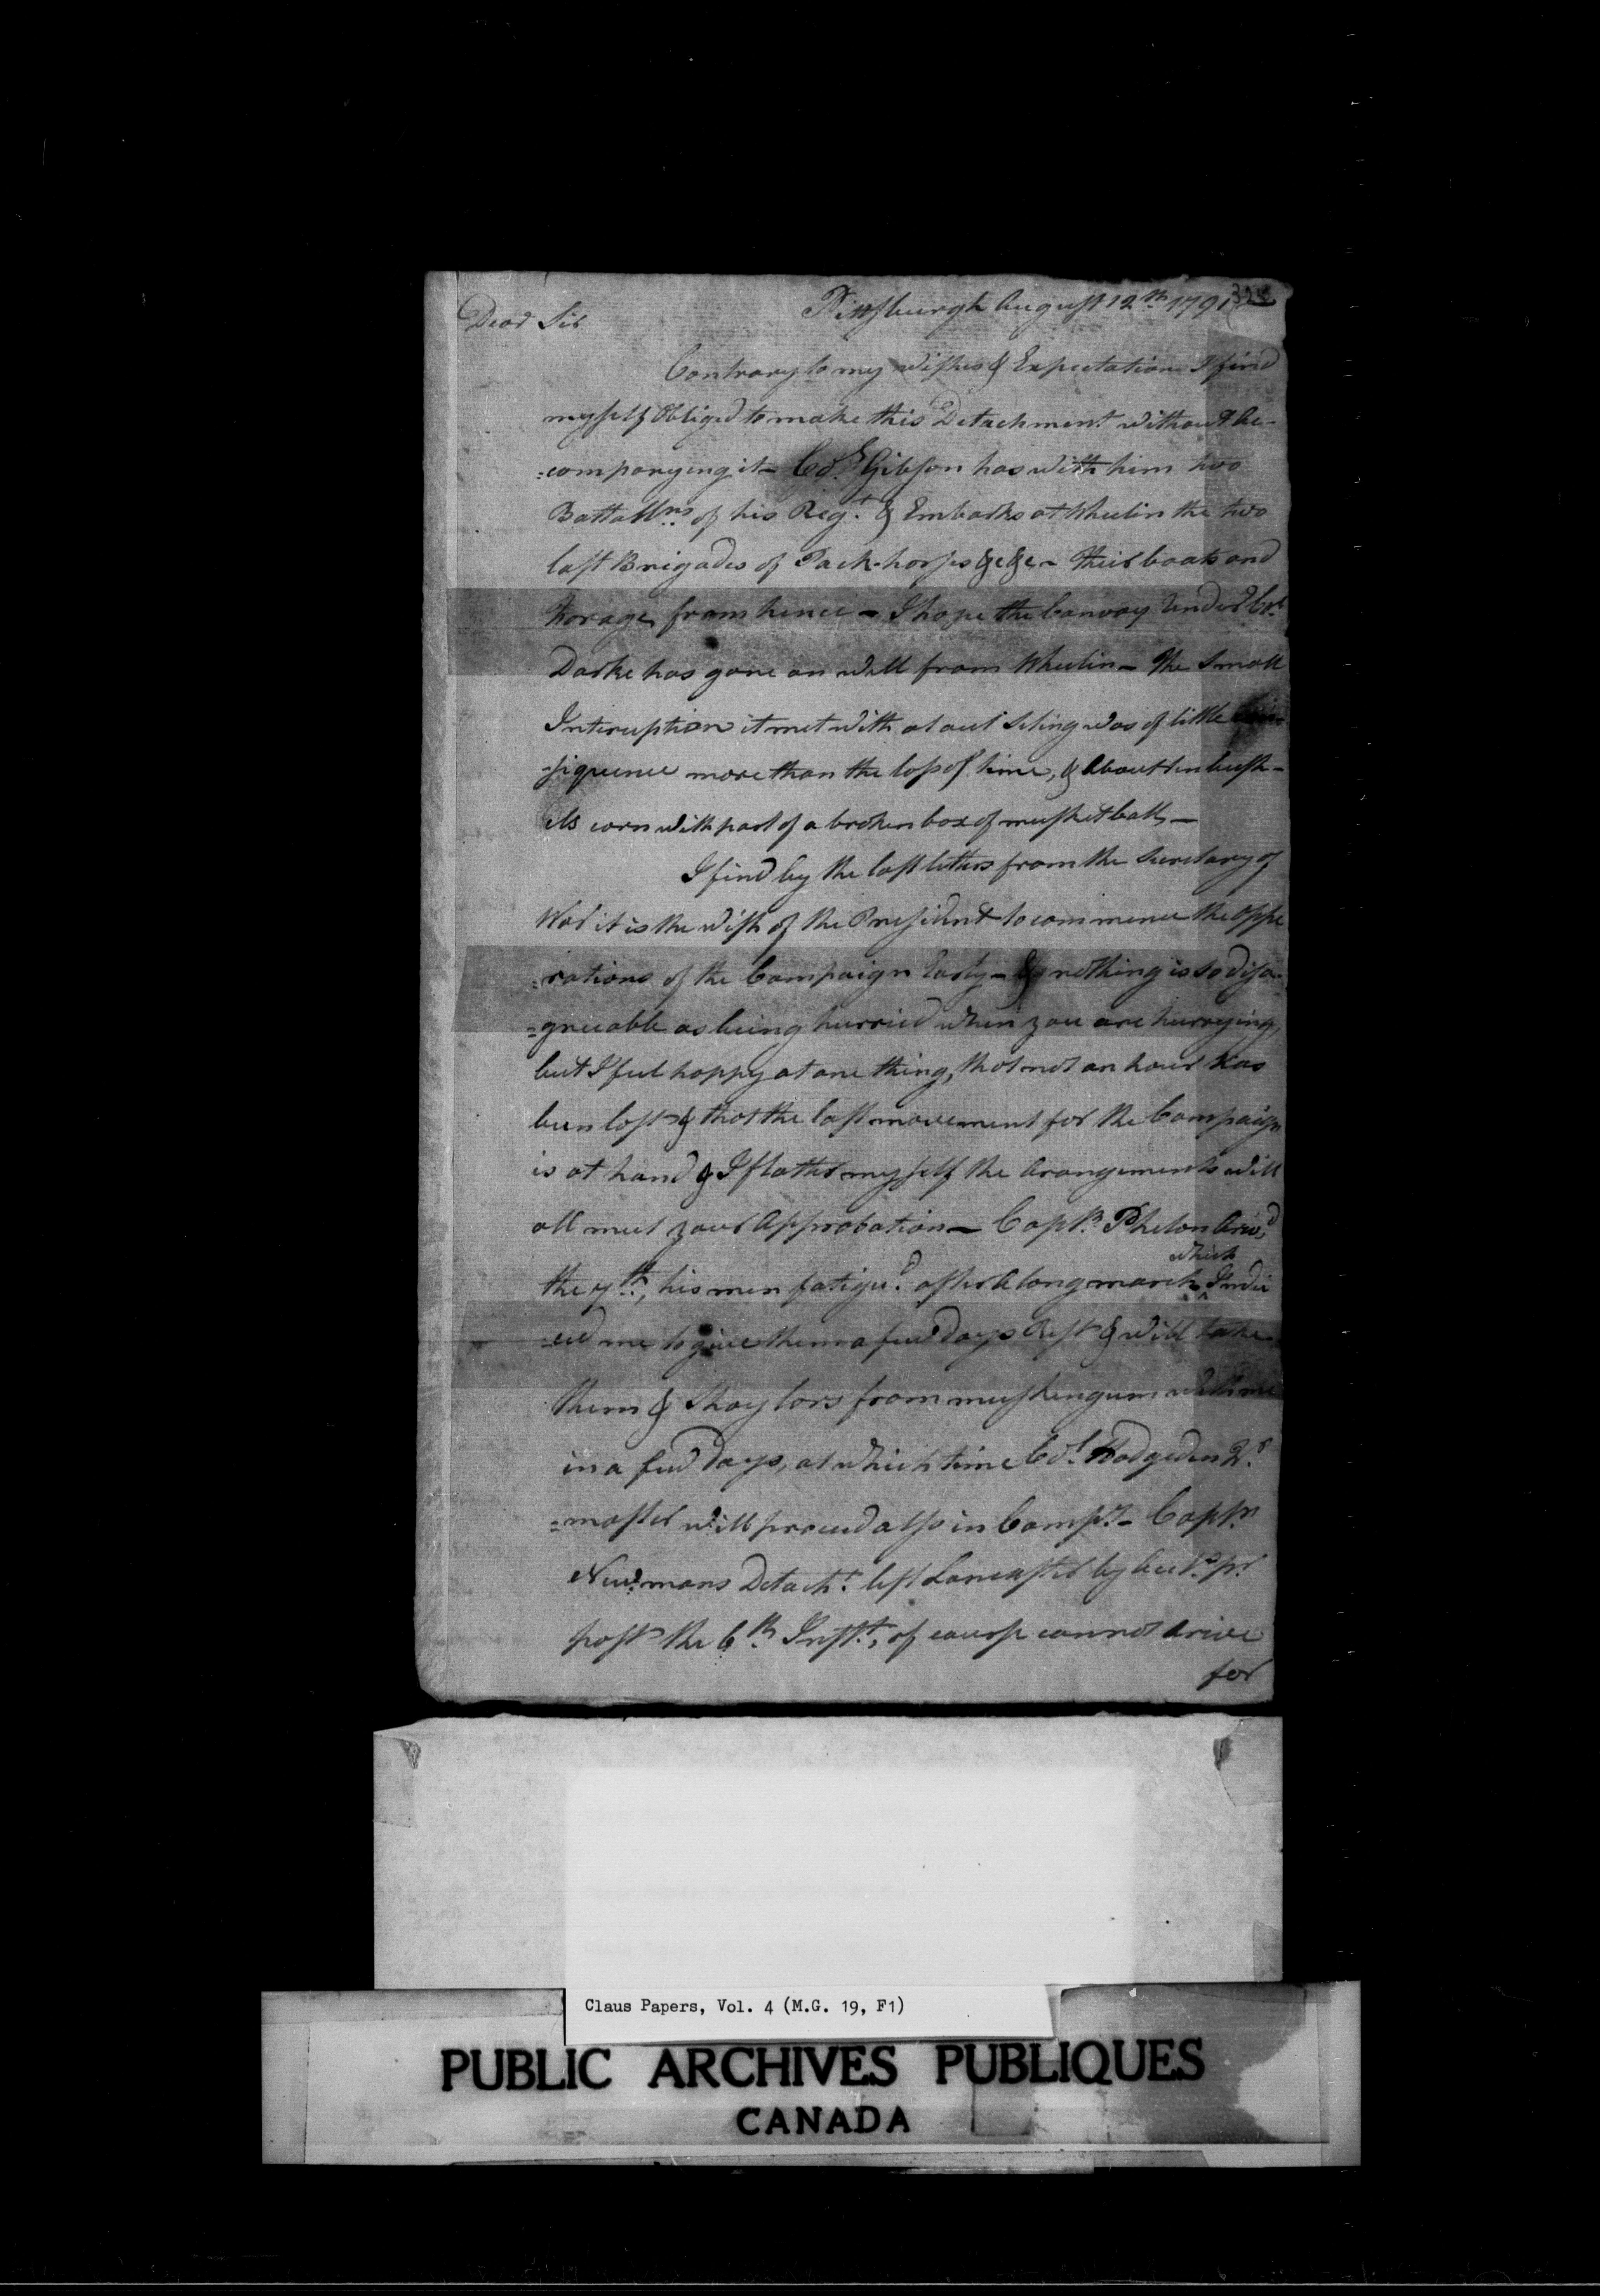 Pittsburgh August 12th 1791
Dear Sir
Contrary to my wishes & Expectation I find
myself Obliged to make this Detachment without Ac-
=companying it – Col. Gibson has with him two
Battallns of his Regt. & Embarks at Wheelin the two
last Brigades of Pack-horses &c &c – their boats and
forage from hence – I hope the Convoy Under Col.
Darke has gone on well from Wheelin – The Small
Interuption it met with at out Seting was of little Con-
-sequence more than the loss of time, & About ten bush-
els corn with part of a broken box of musket balls –
I find by the last letters from the Secretary of
War it is the wish of the President to commence the Oppe
=rations of the Campaign Early – & nothing is so disa-
=greeable as being hurried when you are hurrying,
but I feel happy at one thing, that not an hour has
been lost & that the last movement for the Campaign
is at hand & I flatter myself the Arangements will
all meet your Approbation – Captn. Phelon Arivd
which
the 7th., his men fatigud. after A long march ^ Indu
-ced me to give them a few days Rest & will take
them & Shaylors from muskengum with me
in a few days, at which time Col. Hodgeden Qr.
=master will proceed also in Compy. – Captn
Newmans Detacht. left Lancaster by Acct. pr.
post the 6th Instt., of course cannot Arive
for
Claus Papers, Vol. 4 (M.G. 19, F1)
PUBLIC ARCHIVES PUBLIQUES
CANADA